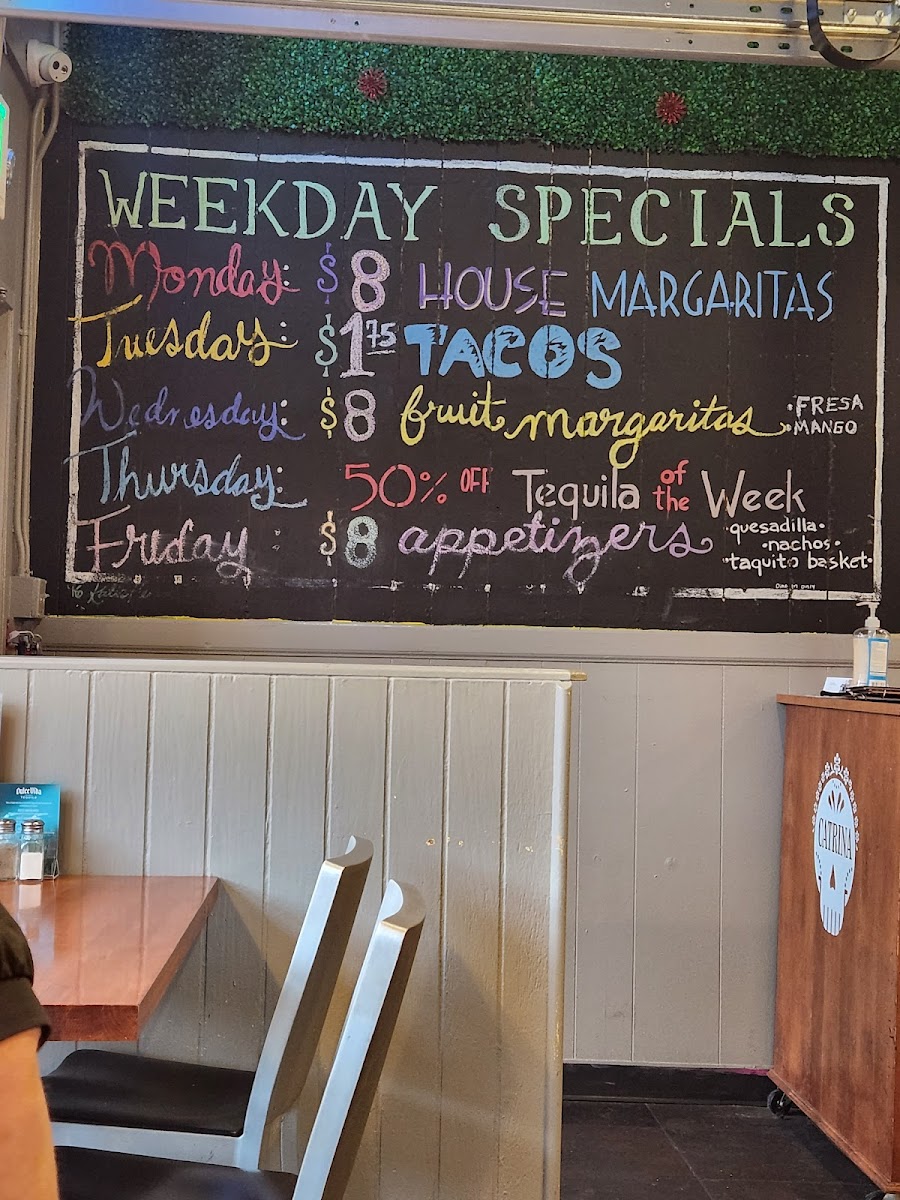 WEEKDAY SPECIALS
Monday: $8 HOUSE MARGARITAS
Tuesday: $1.75 TACOS
Wednesday: $8 fruit margaritas •FRESA •MANGO
Thursday: 50% OFF Tequila of the Week
Friday: $8 appetizers •quesadilla• •nachos• •taquito basket•
Dulce Vida
TEQUILA
CATRINA